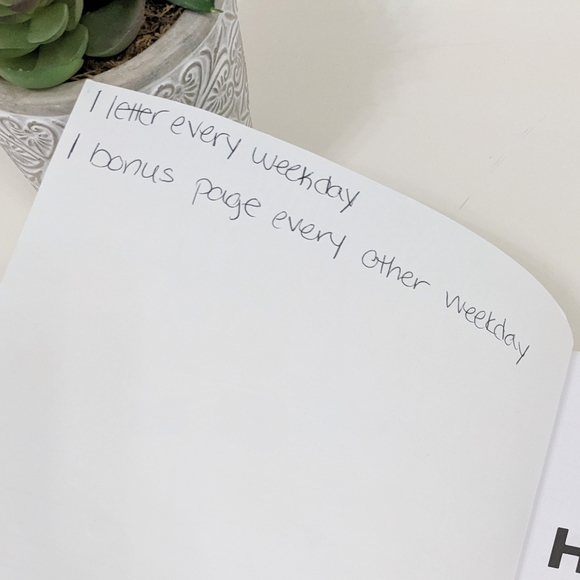 1 letter every weekday
1 bonus page every other weekday
H